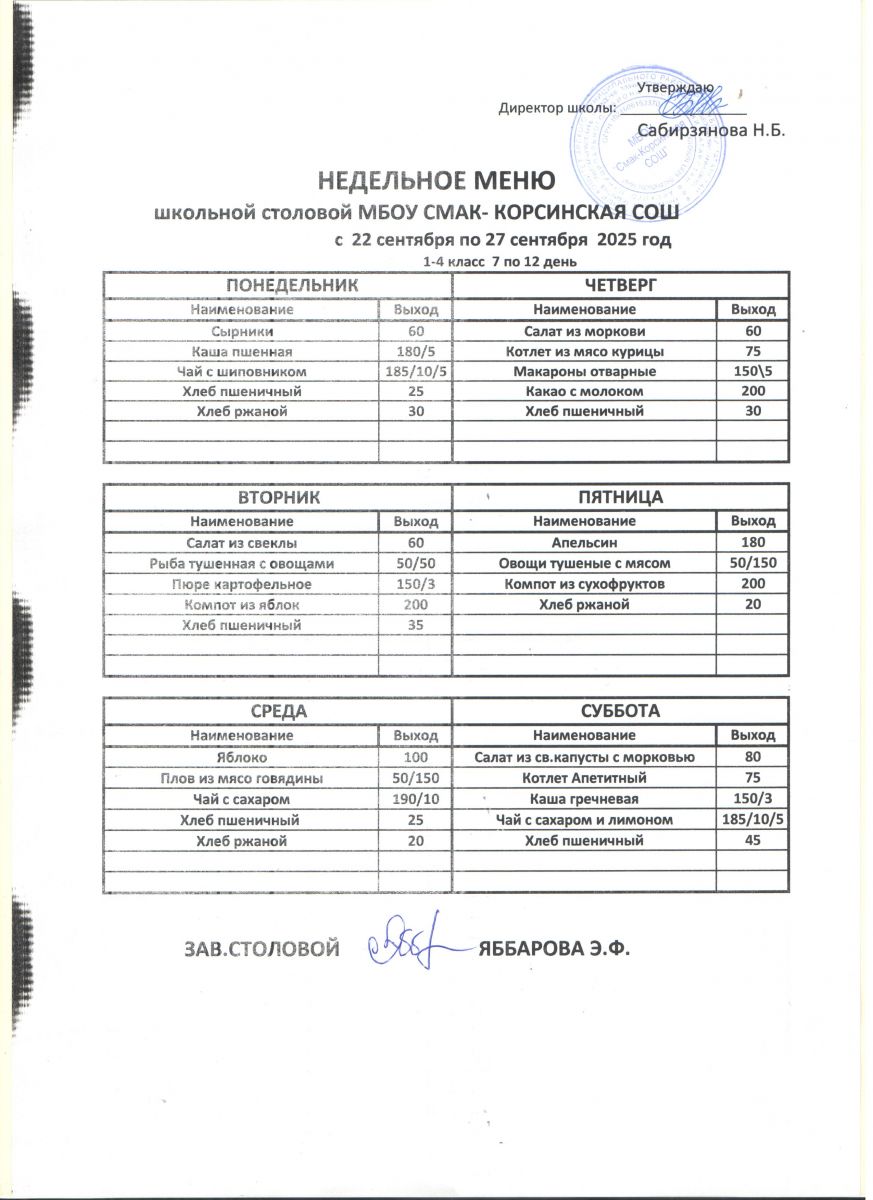 Утверждаю
Директор школы:
Сабирзянова Н.Б.
МБОУ
Смак-Корсинская
СОШ
НЕДЕЛЬНОЕ МЕНЮ
школьной столовой МБОУ СМАК- КОРСИНСКАЯ СОШ
с 22 сентября по 27 сентября 2025 год
1-4 класс 7 по 12 день
ПОНЕДЕЛЬНИК ЧЕТВЕРГ
Наименование Выход Наименование Выход
Сырники 60 Салат из моркови 60
Каша пшенная 180/5 Котлет из мясо курицы 75
Чай с шиповником 185/10/5 Макароны отварные 150\5
Хлеб пшеничный 25 Какао с молоком 200
Хлеб ржаной 30 Хлеб пшеничный 30
ВТОРНИК ПЯТНИЦА
Наименование Выход Наименование Выход
Салат из свеклы 60 Апельсин 180
Рыба тушенная с овощами 50/50 Овощи тушеные с мясом 50/150
Пюре картофельное 150/3 Компот из сухофруктов 200
Компот из яблок 200 Хлеб ржаной 20
Хлеб пшеничный 35
СРЕДА СУББОТА
Наименование Выход Наименование Выход
Яблоко 100 Салат из св.капусты с морковью 80
Плов из мясо говядины 50/150 Котлет Апетитный 75
Чай с сахаром 190/10 Каша гречневая 150/3
Хлеб пшеничный 25 Чай с сахаром и лимоном 185/10/5
Хлеб ржаной 20 Хлеб пшеничный 45
ЗАВ.СТОЛОВОЙ ЯББАРОВА Э.Ф.